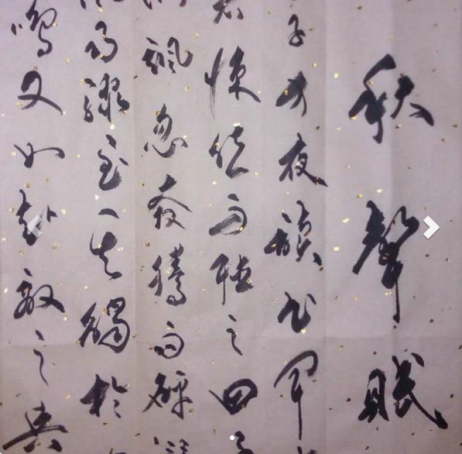 秋聲賦
子方夜讀書聞
悚然而聽之曰
颯忽奔騰而砰
雨驟至其觸於
鳴又如赴敵之兵